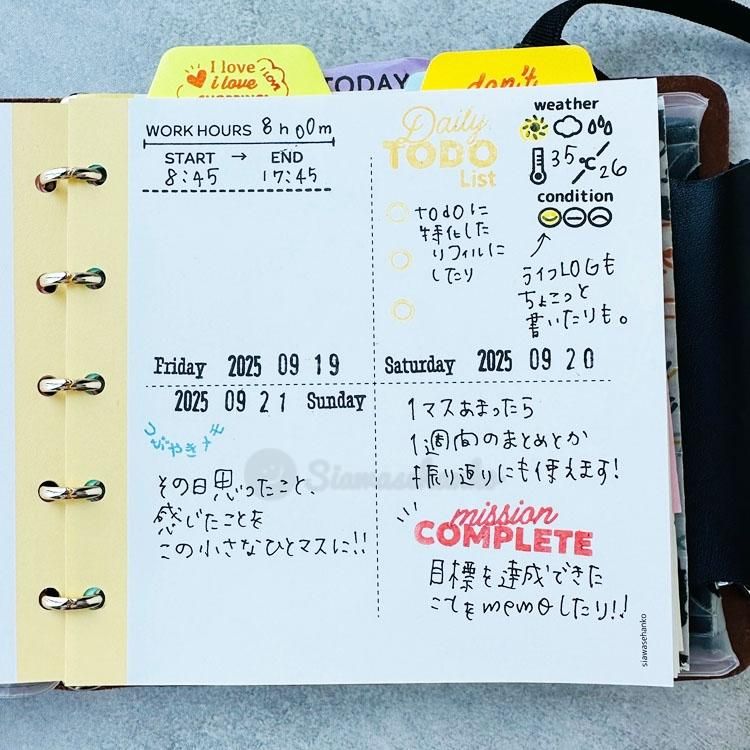 I love
i love
SHOPPING!
TODAY
don't
WORK HOURS 8h00m
START → END
8:45 17:45
Daily
TODO
List
todoに
特化した
リフィルに
したり
weather
35℃/26
condition
ライフLOGも
ちょこっと
書いたりも。
Friday 2025 09 19
Saturday 2025 09 20
2025 09 21 Sunday
つぶやきメモ
その日思ったこと、
感じたことを
この小さなひとマスに!!
1マスあまったら
1週間のまとめとか
振り返りにも使えます!
mission
COMPLETE
目標を達成できた
ことをmemoしたり!!
Siawasehanko
siawasehanko